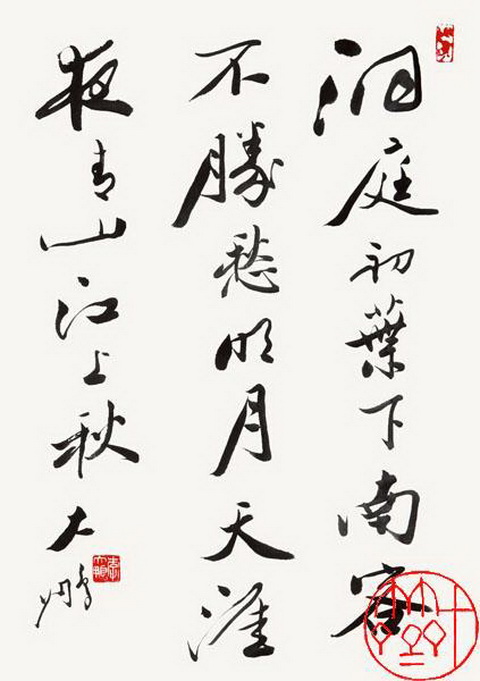 洞庭初葉下南客
不勝愁明月天涯
夜青山江上秋
大鵬